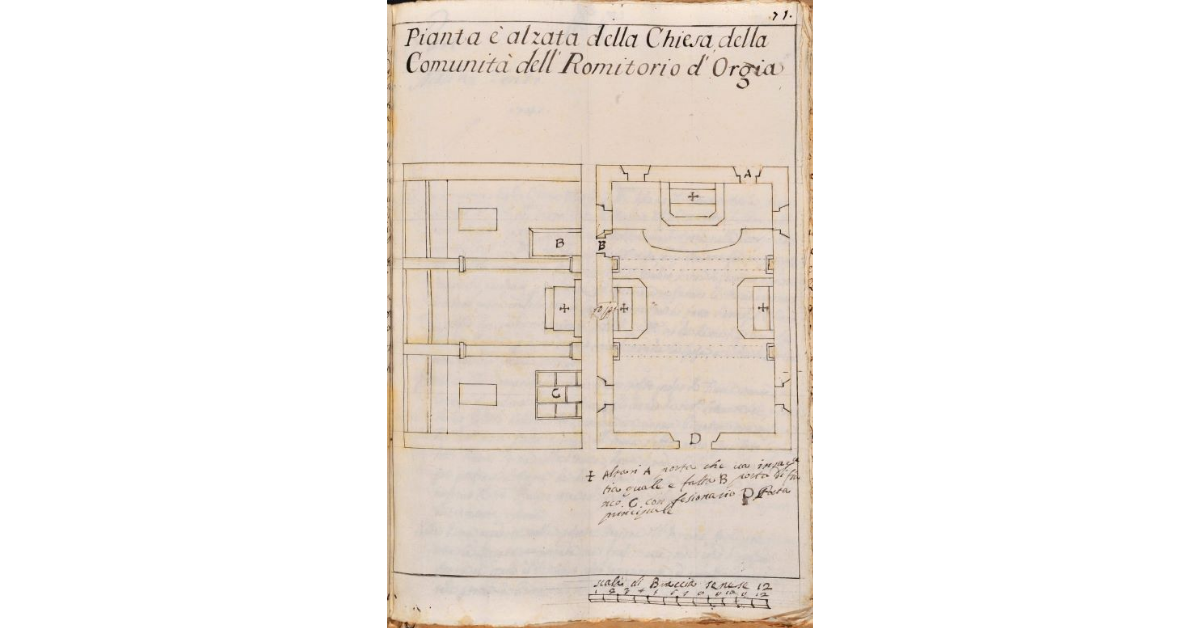 71.
Pianta è alzata della Chiesa della
Comunità dell' Romitorio d'Orgia
A
B
B
C
D
‡ Altari A porta che va in
quale e falsa B porta di
C con fesionario D Porta
principale
scala di Braccia senese 12